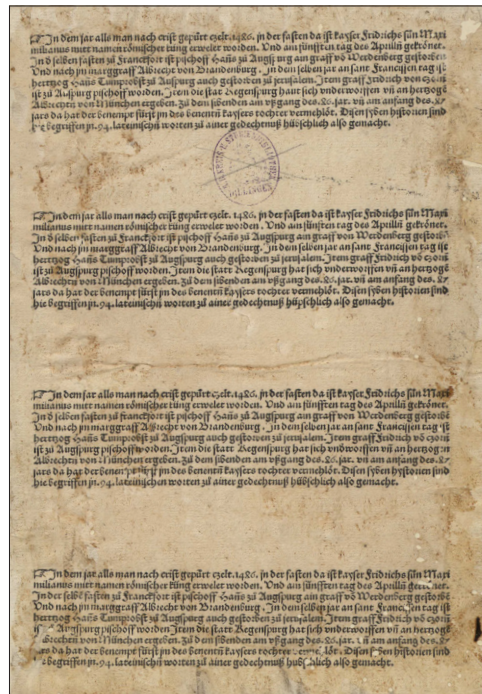 In dem jar alls man nach crist gepürt czelt.1486. in der fasten da ist kayser Fridrichs sün Maxi
milianus mitt namen römischer küng erwelet worden. Vnd am fünfften tag des Aprilln gekrönet.
In d selben fasten zů Franckfort ist pischoff Hañs zů Augspurg am graff von Werdenberg gestorben
Vnd nach jm marggraff Albrecht von Brandenburg. In dem selben jar an sant Francissen tag ist
hertzog Hañs Tumprobst zů Augspurg auch gestorben zů jerusalem. Item graff Fridrich von
ist zů Auspurg pischoff worden. Item die stat Regenspurg haut sich vnderworffen vñ an hertzog
Albrechtn von München ergeben. Zů dem sibenden am vßgang des.86.jar. vñ am anfang des.87
jars da hat der benempt fürst jn des benentñ kaysers tochter vermehlöt. Disen syben historien sind
hie begriffen jn.94. lateinischñ worten zů ainer gedechtnuß hübschlich also gemacht.
In dem jar alls man nach crist gepürt czelt.1486. in der fasten da ist kayser Fridrichs sün Maxi
milianus mitt namen römischer küng erwelet worden. Vnd am fünfften tag des Aprilln gekönet.
In d selben fasten zů Franckfort ist pischoff Hañs zů Augspurg am graff von Werdenberg gestorbñ
Vnd nach jm marggraff Albrecht von Brandenburg. In dem selben jar an sant Francissen tag ist
hertzog Hañs Tumprobst zů Augspurg auch gestorben zů jerusalem. Item graff Fridrich võ
ist zů Augspurg pischoff worden. Item die stat Regenspurg hat sich vnderworffen vñ an hertzogē
Albrechtn von München ergeben. Zů dem sibenden am vßgang des.86.jar. vñ am anfang des.87
jars da hat der benempt fürst jn des benentñ kaysers tochter vermehlöt. Disen syben historien sind
hie begriffen jn.94. lateinischñ worten zů ainer gedechtnuß hüpschlich also gemacht.
In dem jar alls man nach crist gepürt czelt.1486. in der fasten da ist kayser Fridrichs sün Maxi
milianus mitt namen römischer küng erwelet worden. Vnd am fünfften tag des Aprilln gekönet.
In d selben fasten zů franckfort ist pischoff Hañs zů Augspurg am graff von Werdenberg gestorbē
Vnd nach jm marggraff Albrecht von Brandenburg. In dem selben jar an sant Francissen tag ist
hertzog Hañs Tumprobst zů Augspurg auch gestorben zů jerusalem. Item graff Fridrich võ
ist zů Augspurg pischoff worden. Item die stat Regenspurg hat sich vndworffen vñ an hertzogen
Albrechtn von München ergeben. Zů dem sibenden am vßgang des.86.jar. vñ am anfang des.87
jars da hat der benempt fürst jn des benentñ kaysers tochter vermehlöt. Disen syben hystorien sind
hie begriffen jn.94. lateinischen worten zů ainer gedechtnuß hübschlich also gemacht.
In dem jar alls man nach crist gepürt czelt.1486. in der fasten da ist kayser Fridrichs sün Maxi
milianus mitt namen römischer küng erwelet worden. Vnd am fünfften tag des Aprilln
In der selbē fasten zů Franckfort ist pischoff Hañs zů Augspurg am graff võ Werdenberg gestorben
Vnd nach jm marggraff Albrecht von Brandenburg. In dem selben jar an sant Francissen tag ist
hertzog Hañs Tumprobst zů Augspurg auch gestorben zů jerusalem. Item graff Fridrich võ
zů Augspurg pischoff worden. Item die statt Regenspurg hat sich vnderworffen vñ an hertzogē
Albrechtn von München ergeben. Zů dem sibenden am vßgang des.86.jar. vñ am anfang des.87
da hat der benempt fürst jn des benentñ kaysers tochter Disen syben historien sind
begriffen jn.94. lateinischñ worten zů ainer gedechtnuß also gemacht.